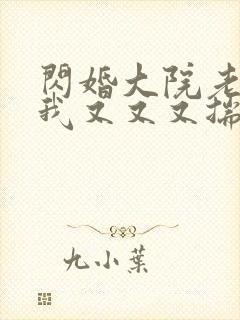 閃婚大院老
我又又又揣
九小葉